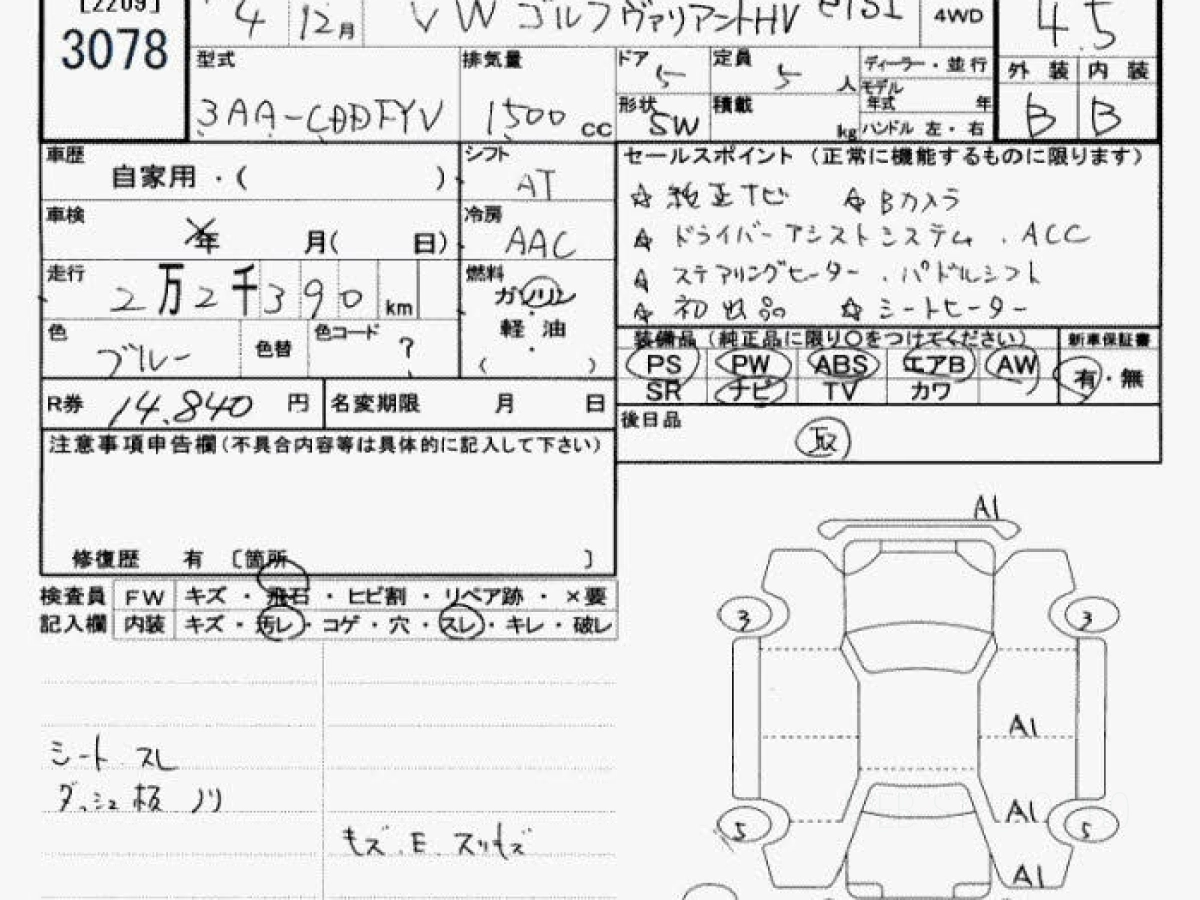 [2209]
3078
4 12月 VW ゴルフヴァリアントHV eTSI 4WD
4.5
型式 排気量 ドア 5 定員 5 人 ディーラー・並行
モデル年式 年
外装 内装
3AA-CDDFYV 1500 cc 形状 SW 積載 kg ハンドル 左・右
B B
車歴 自家用・( )
シフト AT
セールスポイント (正常に機能するものに限ります)
☆ 純正ナビ ☆ Bカメラ
☆ ドライバーアシストシステム . ACC
☆ ステアリングヒーター . パドルシフト
☆ 初出品 ☆ シートヒーター
車検 年 月( 日)
冷房 AAC
走行 2万2千390 km
燃料 ガソリン
軽油
( )
色 ブルー 色替 色コード ?
装備品 (純正品に限り○をつけてください) 新車保証書
PS PW ABS エアB AW 有・無
SR ナビ TV カワ
R券 14.840 円 名変期限 月 日
後日品
取
注意事項申告欄(不具合内容等は具体的に記入して下さい)
修復歴 有 〔箇所 〕
検査員 FW キズ・飛石・ヒビ割・リペア跡・×要
記入欄 内装 キズ・汚レ・コゲ・穴・スレ・キレ・破レ
シート スレ
ダッシュ板
キズ . E . スリキズ
A1
3 3
A1
A1
5 5
A1